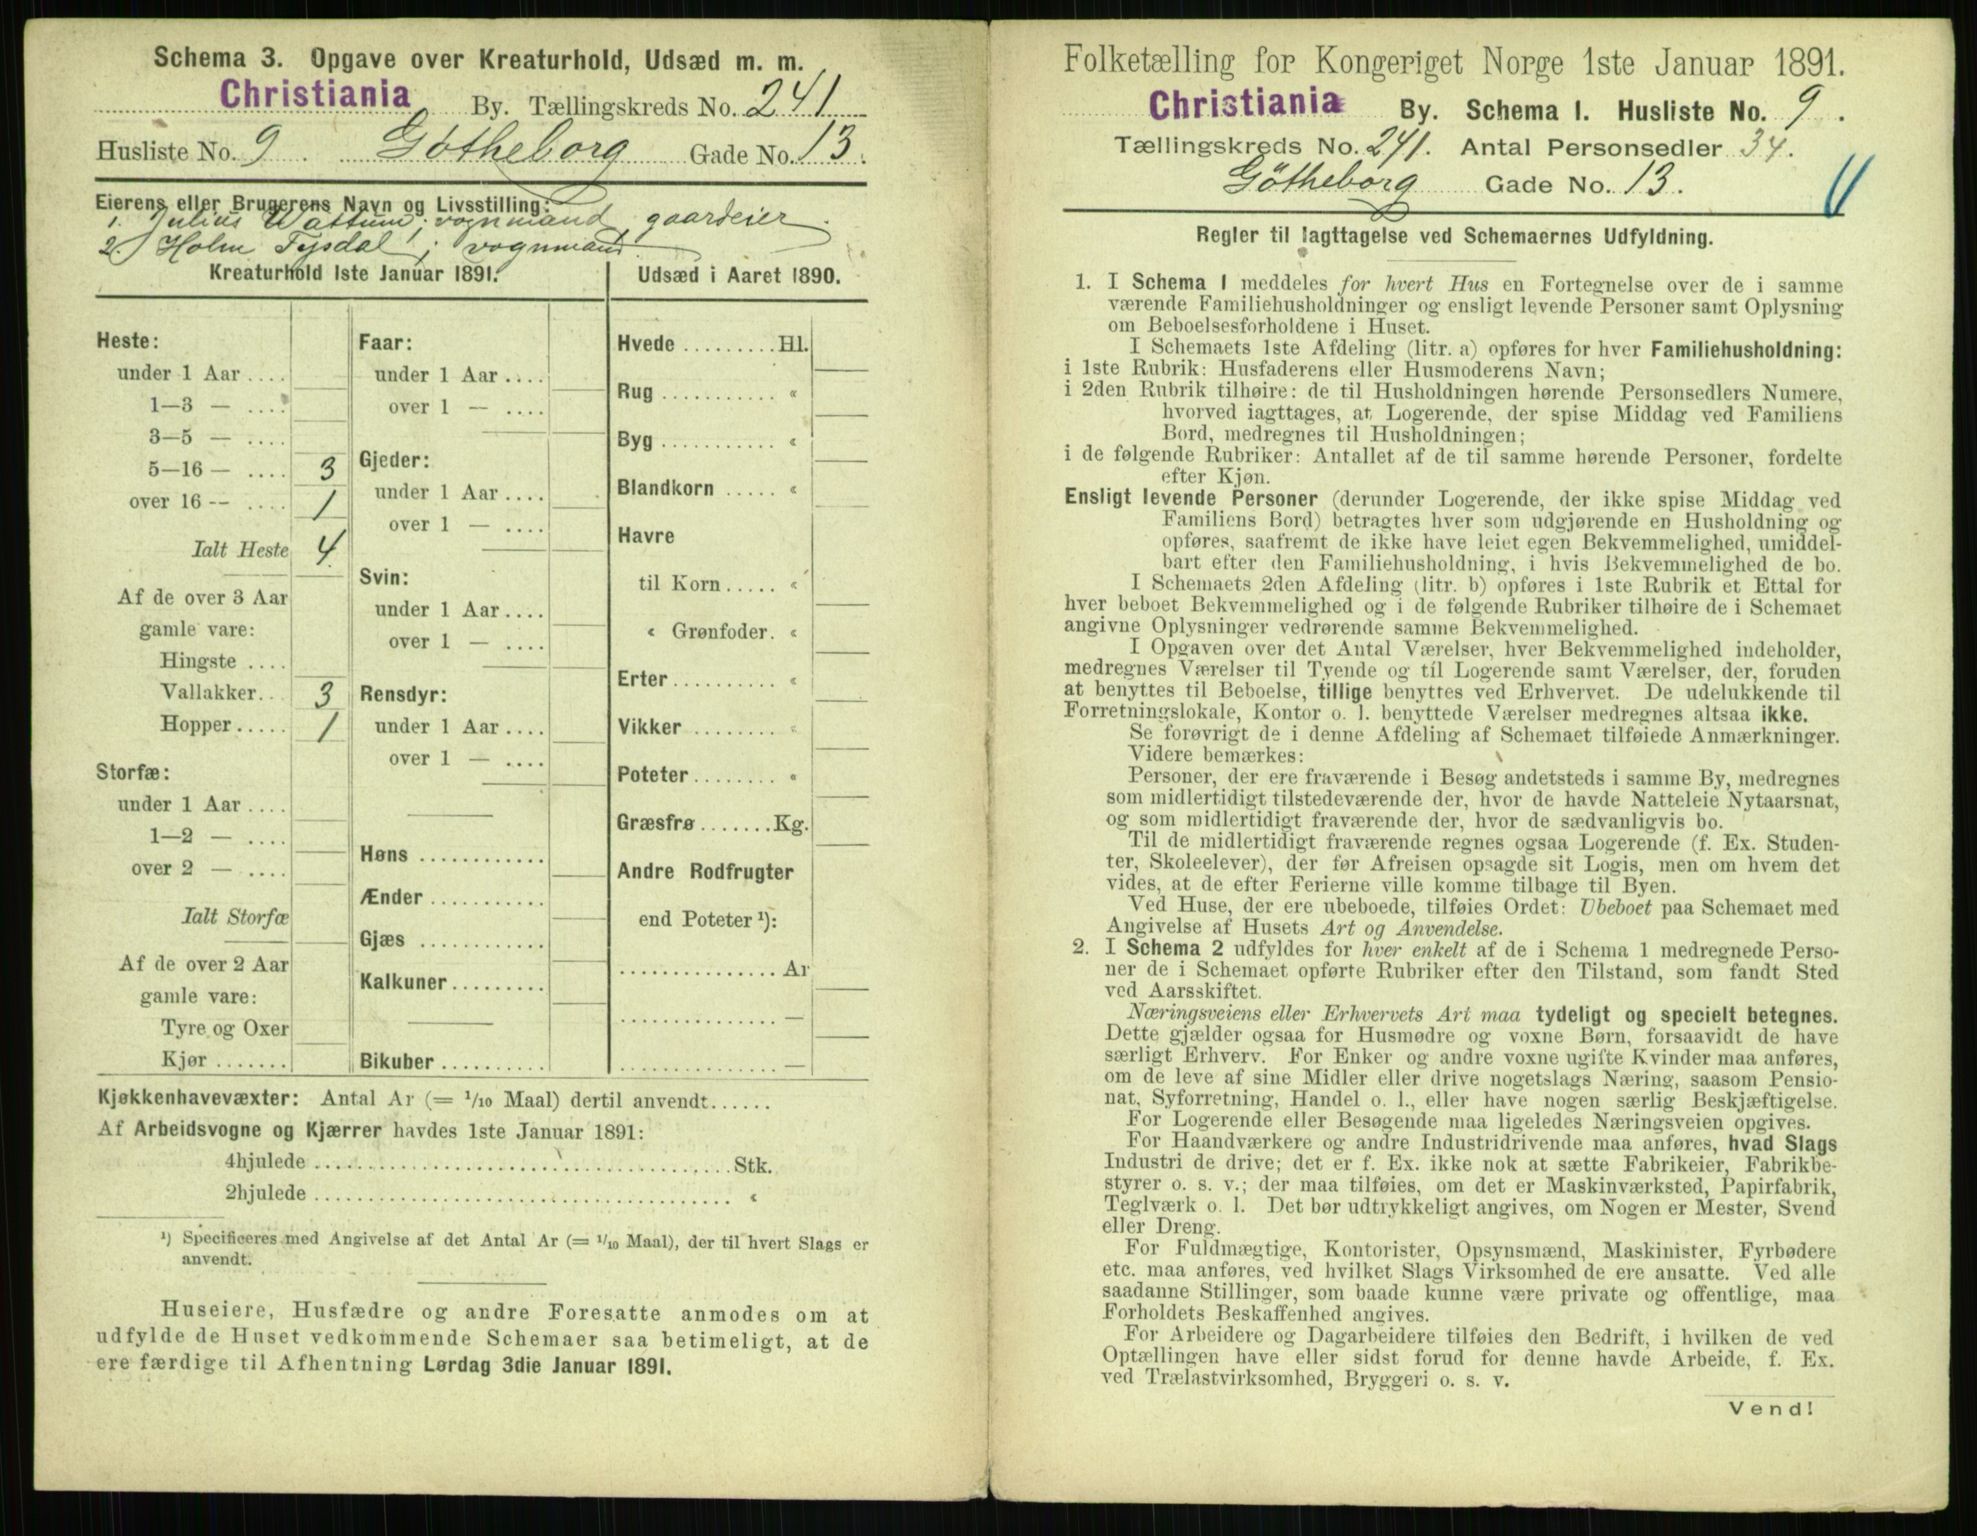 Schema 3. Opgave over Kreaturhold, Udsæd m. m.
Christiania By. Tællingskreds No. 241
Husliste No. 9. Götheborg Gade No. 13.
Eierens eller Brugerens Navn og Livsstilling:
1. Julius Wattum; vognmand, gaardeier.
2. Holm Tysdal; vognmand.
Kreaturhold 1ste Januar 1891.
Heste:
under 1 Aar ....
1—3 — ....
3—5 — ....
5—16 — .... 3
over 16 -- .... 1
Ialt Heste 4
Af de over 3 Aar
gamle vare:
Hingste ....
Vallakker.. 3
Hopper..... 1
Storfæ:
under 1 Aar ....
1—2 — ....
over 2 — ....
Ialt Storfæ
Af de over 2 Aar
gamle vare:
Tyre og Oxer
Kjør .......
Faar:
under 1 Aar ....
over 1 — ....
Gjeder:
under 1 Aar ....
over 1 — ....
Svin:
under 1 Aar ....
over 1 — ....
Rensdyr:
under 1 Aar ....
over 1 — ....
Høns ............
Ænder ...........
Gjæs ............
Kalkuner.........
Bikuber ..........
Udsæd i Aaret 1890.
Hvede .........Hl.
Rug ........... «
Byg ........... «
Blandkorn ..... «
Havre
til Korn ..... «
« Grønfoder. «
Erter.......... «
Vikker ........ «
Poteter ........ «
Græsfrø .......Kg.
Andre Rodfrugter
end Poteter ¹):
............... Ar
............... —
............... —
Kjøkkenhavevæxter: Antal Ar (= 1/10 Maal) dertil anvendt......
Af Arbeidsvogne og Kjærrer havdes 1ste Januar 1891:
4hjulede ........................................Stk.
2hjulede ........................................ «
¹) Specificeres med Angivelse af det Antal Ar (= 1/10 Maal), der til hvert Slags er
anvendt.
Huseiere, Husfædre og andre Foresatte anmodes om at
udfylde de Huset vedkommende Schemaer saa betimeligt, at de
ere færdige til Afhentning Lørdag 3die Januar 1891.
Folketælling for Kongeriget Norge 1ste Januar 1891.
Christiania By. Schema I. Husliste No. 9.
Tællingskreds No. 241. Antal Personsedler 34.
Götheborg Gade No. 13.
Regler til Iagttagelse ved Schemaernes Udfyldning.
1. I Schema I meddeles for hvert Hus en Fortegnelse over de i samme
værende Familiehusholdninger og ensligt levende Personer samt Oplysning
om Beboelsesforholdene i Huset.
I Schemaets 1ste Afdeling (litr. a) opføres for hver Familiehusholdning:
i 1ste Rubrik: Husfaderens eller Husmoderens Navn;
i 2den Rubrik tilhøire: de til Husholdningen hørende Personsedlers Numere,
hvorved iagttages, at Logerende, der spise Middag ved Familiens
Bord, medregnes til Husholdningen;
i de følgende Rubriker: Antallet af de til samme hørende Personer, fordelte
efter Kjøn.
Ensligt levende Personer (derunder Logerende, der ikke spise Middag ved
Familiens Bord) betragtes hver som udgjørende en Husholdning og
opføres, saafremt de ikke have leiet egen Bekvemmelighed, umiddel-
bart efter den Familiehusholdning, i hvis Bekvemmelighed de bo.
I Schemaets 2den Afdeling (litr. b) opføres i 1ste Rubrik et Ettal for
hver beboet Bekvemmelighed og i de følgende Rubriker tilhøire de i Schemaet
angivne Oplysninger vedrørende samme Bekvemmelighed.
I Opgaven over det Antal Værelser, hver Bekvemmelighed indeholder,
medregnes Værelser til Tyende og til Logerende samt Værelser, der, foruden
at benyttes til Beboelse, tillige benyttes ved Erhvervet. De udelukkende til
Forretningslokale, Kontor o. l. benyttede Værelser medregnes altsaa ikke.
Se forøvrigt de i denne Afdeling af Schemaet tilføiede Anmærkninger.
Videre bemærkes:
Personer, der ere fraværende i Besøg andetsteds i samme By, medregnes
som midlertidigt tilstedeværende der, hvor de havde Natteleie Nytaarsnat,
og som midlertidigt fraværende der, hvor de sædvanligvis bo.
Til de midlertidigt fraværende regnes ogsaa Logerende (f. Ex. Studen-
ter, Skoleelever), der før Afreisen opsagde sit Logis, men om hvem det
vides, at de efter Ferierne ville komme tilbage til Byen.
Ved Huse, der ere ubeboede, tilføies Ordet: Ubeboet paa Schemaet med
Angivelse af Husets Art og Anvendelse.
2. I Schema 2 udfyldes for hver enkelt af de i Schema 1 medregnede Perso-
ner de i Schemaet opførte Rubriker efter den Tilstand, som fandt Sted
ved Aarsskiftet.
Næringsveiens eller Erhvervets Art maa tydeligt og specielt betegnes.
Dette gjælder ogsaa for Husmødre og voxne Børn, forsaavidt de have
særligt Erhverv. For Enker og andre voxne ugifte Kvinder maa anføres,
om de leve af sine Midler eller drive nogetslags Næring, saasom Pensio-
nat, Syforretning, Handel o. l., eller have nogen særlig Beskjæftigelse.
For Logerende eller Besøgende maa ligeledes Næringsveien opgives.
For Haandværkere og andre Industridrivende maa anføres, hvad Slags
Industri de drive; det er f. Ex. ikke nok at sætte Fabrikeier, Fabrikbe-
styrer o. s. v.; der maa tilføies, om det er Maskinværksted, Papirfabrik,
Teglværk o. l. Det bør udtrykkeligt angives, om Nogen er Mester, Svend
eller Dreng.
For Fuldmægtige, Kontorister, Opsynsmænd, Maskinister, Fyrbødere
etc. maa anføres, ved hvilket Slags Virksomhed de ere ansatte. Ved alle
saadanne Stillinger, som baade kunne være private og offentlige, maa
Forholdets Beskaffenhed angives.
For Arbeidere og Dagarbeidere tilføies den Bedrift, i hvilken de ved
Optællingen have eller sidst forud for denne havde Arbeide, f. Ex.
ved Trælastvirksomhed, Bryggeri o. s. v.
Vend!